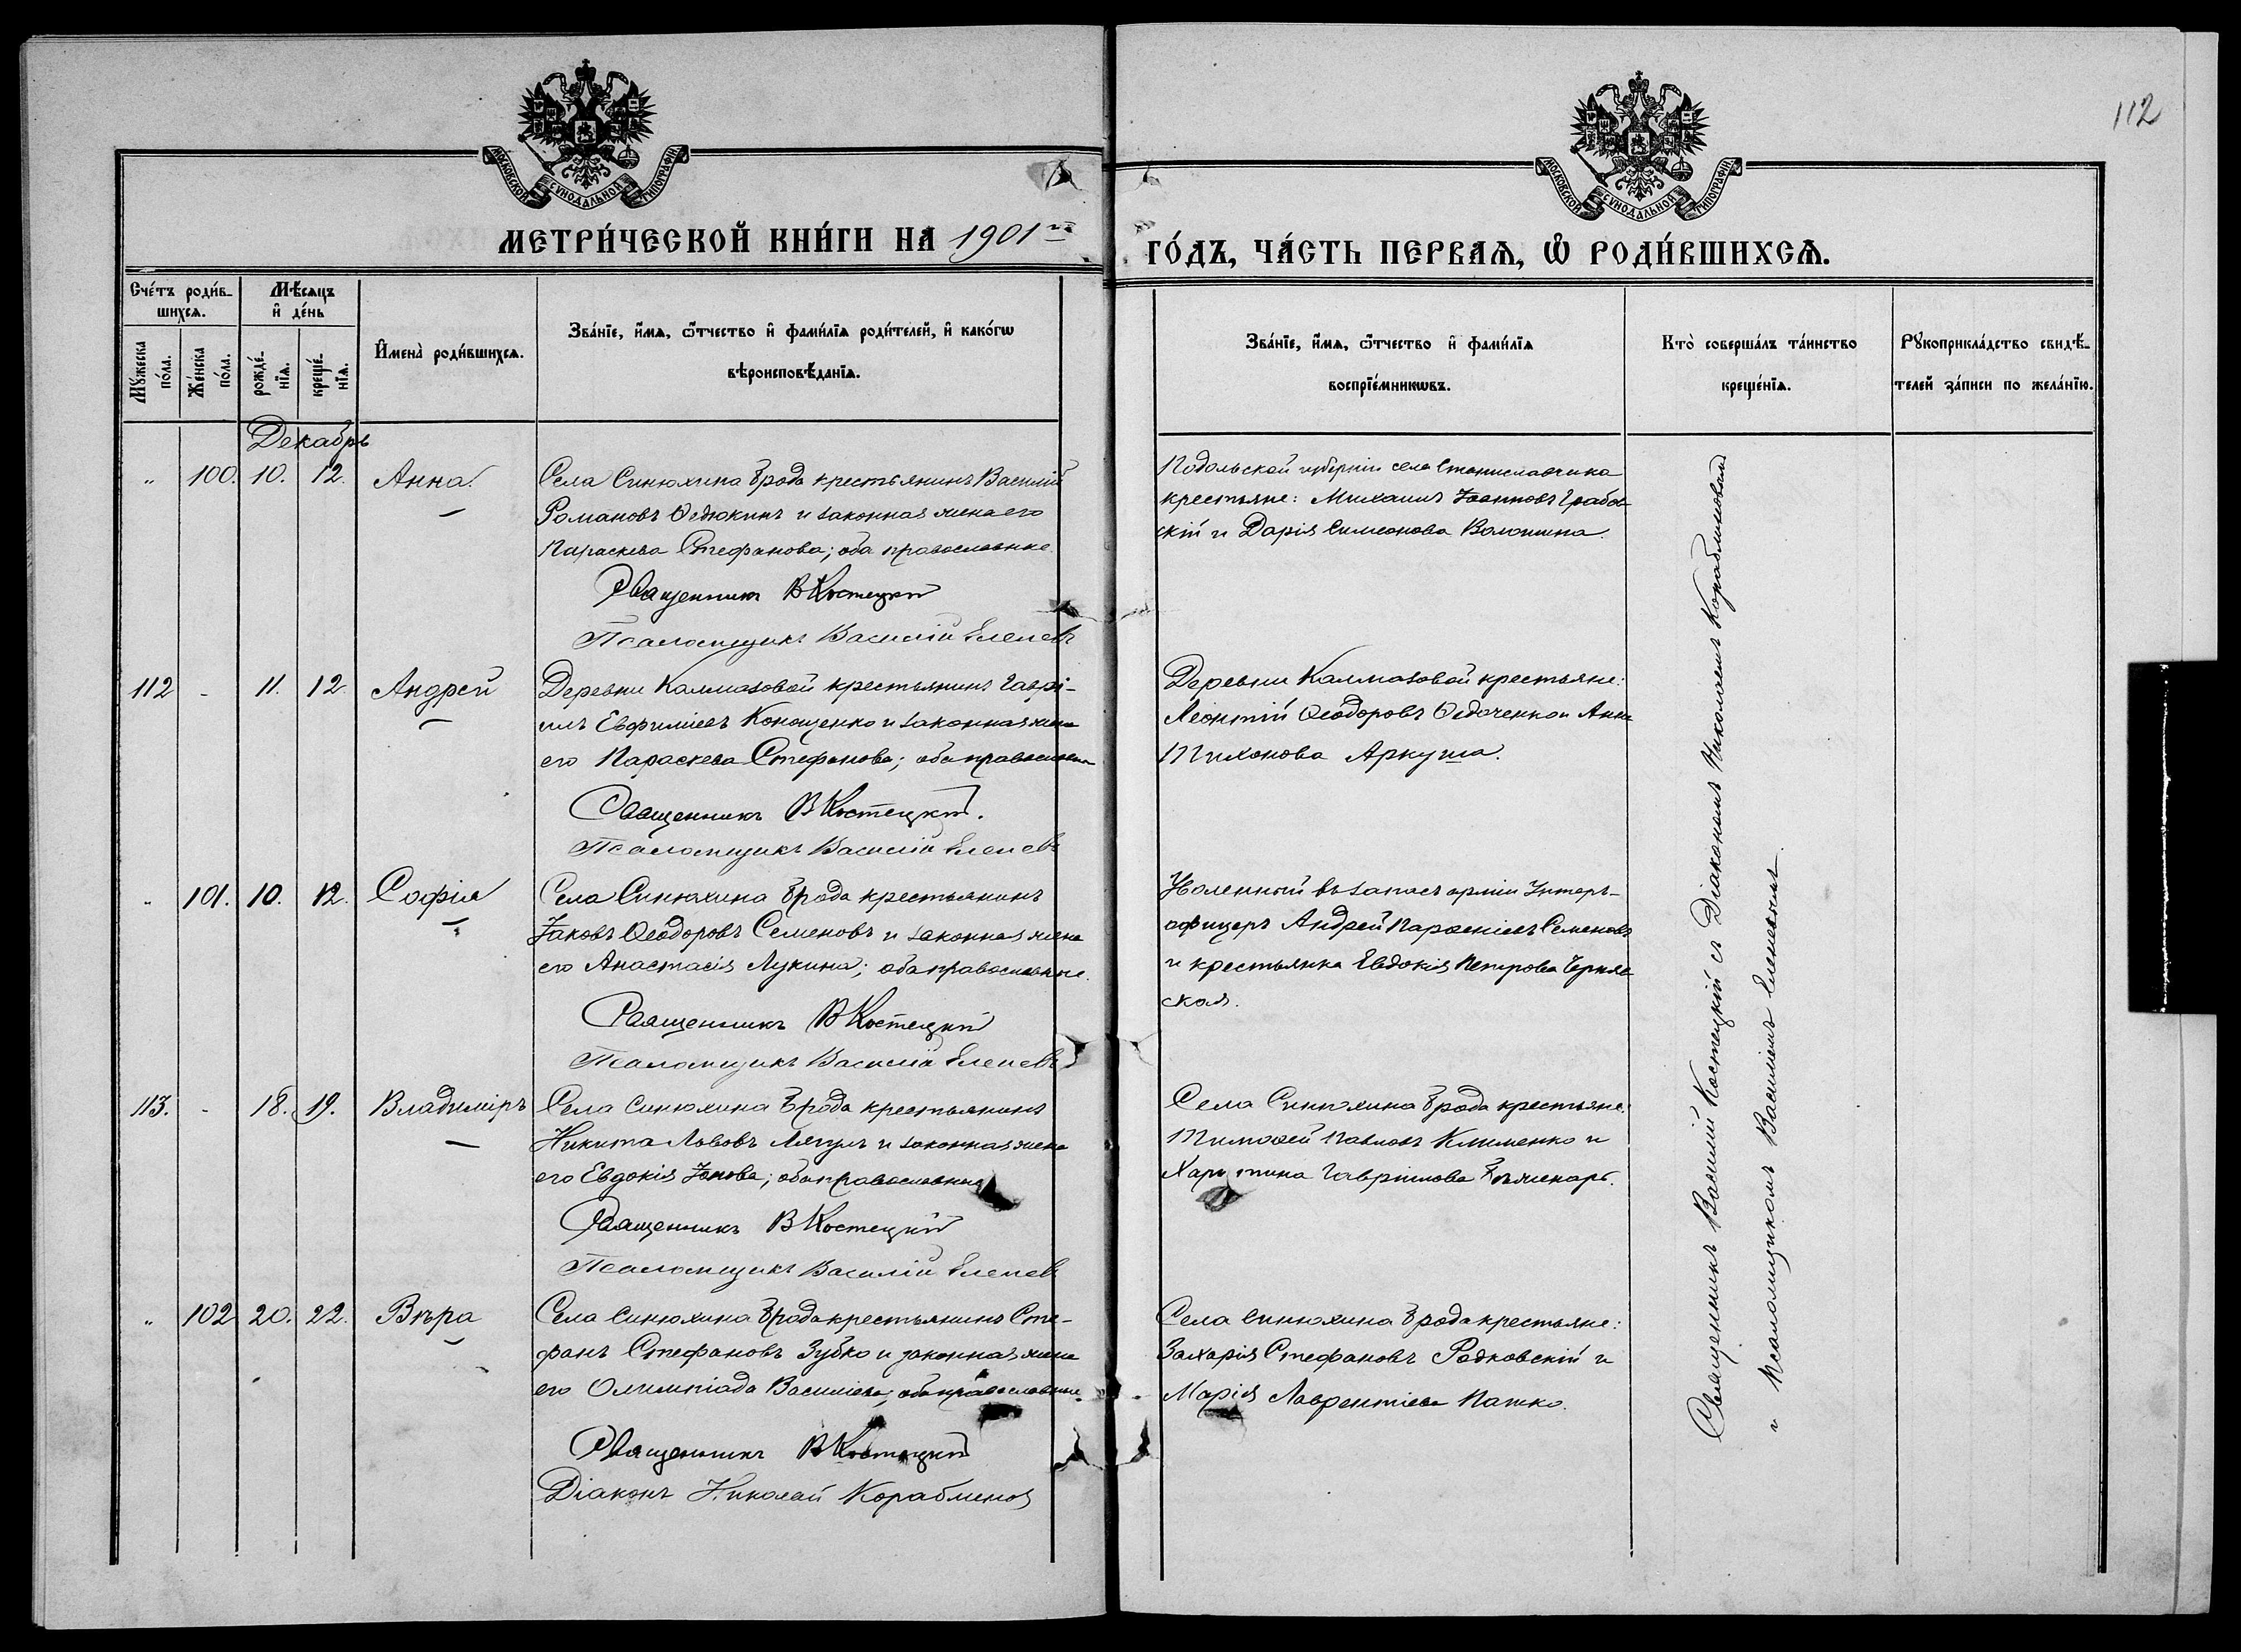 112
МОСКОВСКОЙ СѴНОДАЛЬНОЙ ТИПОГРАФІИ
МОСКОВСКОЙ СѴНОДАЛЬНОЙ ТИПОГРАФІИ
МЕТРИ́ЧЕСКОЙ КНИ́ГИ НА 1901й
ГО́ДЪ, ЧА́СТЬ ПЕРВАѦ, Ѡ҆ РОДИ́ВШИХСѦ.
Сче́тъ роди́в-
шихсѧ.
Мѣ́сѧцъ
и҆ де́нь
Мꙋ́жеска
по́ла.
Же́нска
по́ла.
рожде́-
нїѧ.
креще́-
нїѧ.
И҆мена̀ роди́вшихсѧ.
Зва́нїе, и҆́мѧ, ѻ҆́тчество и҆ фами́лїѧ роди́телей, и҆ како́гѡ
вѣроисповѣ́данїѧ.
Зва́нїе, и҆́мѧ, ѻ҆́тчество и҆ фами́лїѧ
воспрїе́мникѡвъ.
Кто̀ соверша́лъ та́инство
креще́нїѧ.
Рꙋкоприкла́дство свидѣ́-
телей за́писи по жела́нїю.
Декабрь
" 100. 10. 12. Анна.
Села Синюхина Брода крестьянинъ Василій
Романовъ Ѳедюкинъ и законная жена его
Параскева Стефанова; оба православные.
Священникъ В Костецкій
Псаломщикъ Василій Елепевъ
Подольской губерніи села Станиславчика
крестьяне: Михаилъ Іоанновъ Грабов
скій и Дарія Симеонова Волошина.
112 - 11. 12. Андрей
Деревни Калмазовой крестьянинъ Гаврі-
илъ Евфиміевъ Конощенко и законная жена
его Параскева Стефанова; оба православны
Священникъ В Костецкій.
Псаломщикъ Василій Елепевъ
Деревни Калмазовой крестьяне:
Леонтій Ѳеодоровъ Ѳедоченко и Анна
Тихонова Аркуша.
" 101. 10. 12. Софія
Села Синюхина Брода крестьянинъ
Іаковъ Ѳеодоровъ Семеновъ и законная жена
его Анастасія Лукина; оба православные.
Священникъ В Костецкій
Псаломщикъ Василій Елепевъ
въ запасъ арміи Унтеръ-
офицеръ Андрей Парѳеніевъ Семеновъ
и крестьянка Евдокія Петрова Черняв
ская.
113. - 18. 19. Владиміръ
Села Синюхина Брода крестьянинъ
Никита Львовъ и законная жена
его Евдокія Іонова; оба православные
Священникъ В Костецкій
Псаломщикъ Василій Елепевъ
Села Синюхина Брода крестьяне:
Тимоѳей Павловъ Клименко и
Харитина Гавріилова
" 102 20. 22. Вѣра
Села Синюхина Брода крестьянинъ Сте-
фанъ Стефановъ Зубко и законная жена
его Олимпіада Василіева; оба православные.
Священникъ В Костецкій
Діаконъ Николай Кораблиновъ
Села Синюхина Брода крестьяне:
Захарія Стефановъ Радковскій и
Марія Лаврентіева Патко.
Священникъ Василій Костецкій съ Діакономъ Николаемъ Кораблиновымъ
и Псаломщикомъ Василіемъ Елепевымъ.